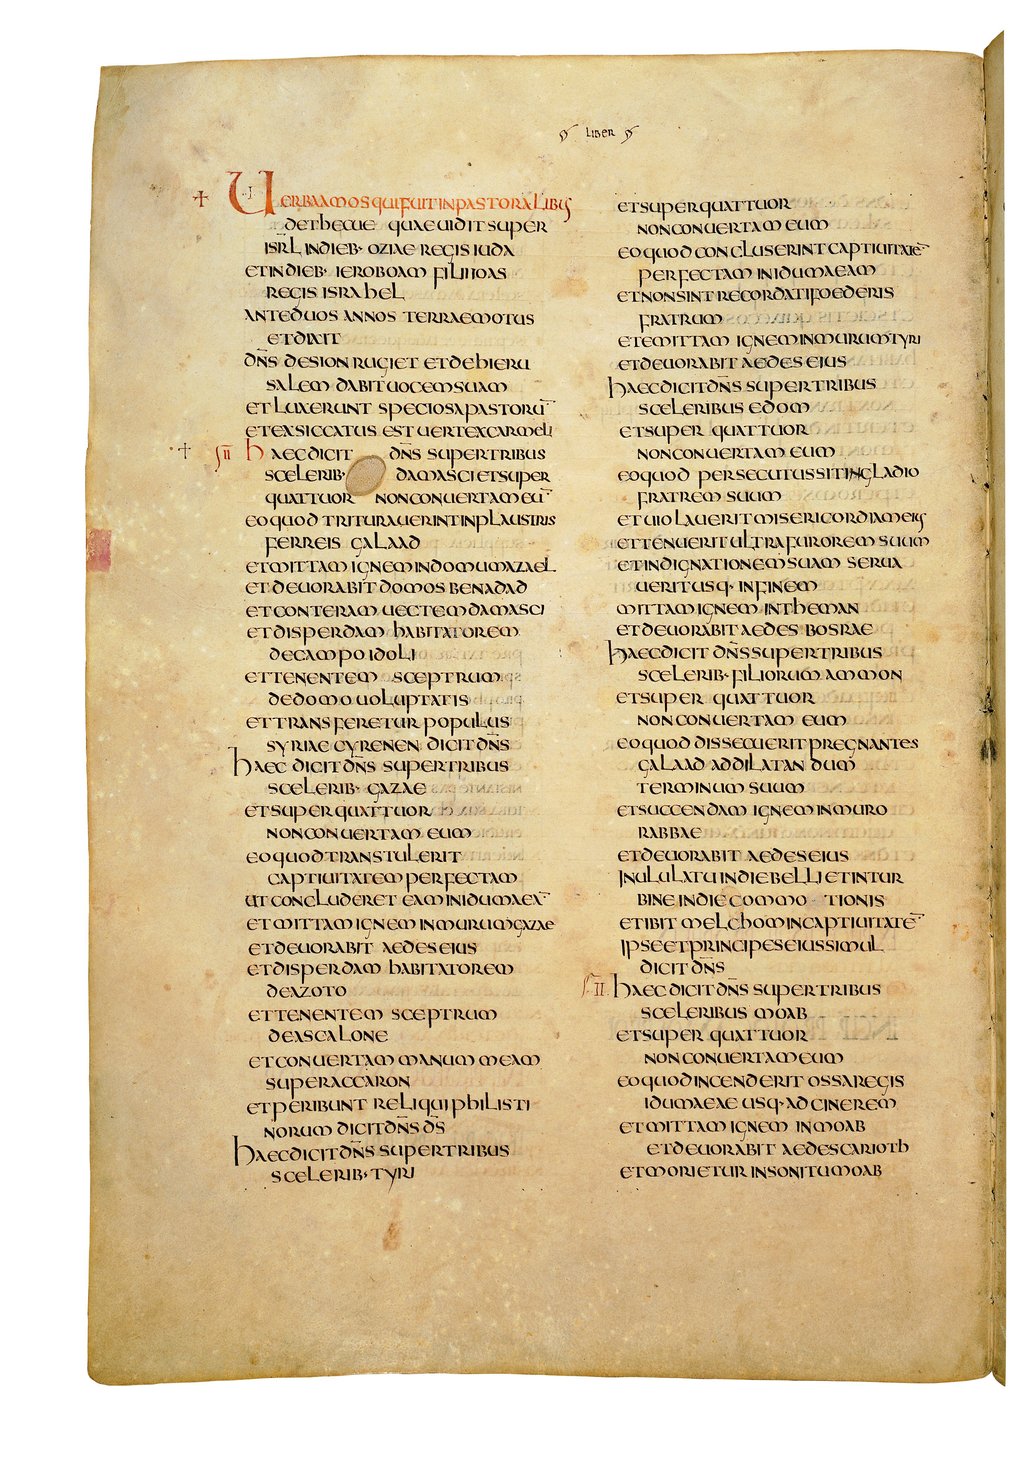 LIBER
UERBA AMOS QUI FUIT IN PASTORALIBUS
DETHECUE QUAE UIDIT SUPER
ISRL IN DIEB· OZIAE REGIS IUDA
ET IN DIEB· IEROBOAM FILII IOAS
REGIS ISRAHEL
ANTE DUOS ANNOS TERRAEMOTUS
ET DIXIT
DN̄S DE SION RUGIET ET DE HIERU
SALEM DABIT UOCEM SUAM
ET LUXERUNT SPECIOSA PASTORŪ
ET EXSICCATUS EST UERTEX CARMELI
II HAEC DICIT DN̄S SUPER TRIBUS
SCELERIB· DAMASCI ET SUPER
QUATTUOR NON CONUERTAM EŪ
EO QUOD TRITURAUERINT IN PLAUSTRIS
FERREIS GALAAD
ET MITTAM IGNEM IN DOMUM AZAEL
ET DEUORABIT DOMOS BENADAD
ET CONTERAM UECTEM DAMASCI
ET DISPERDAM HABITATOREM
DE CAMPO IDOLI
ET TENENTEM SCEPTRUM
DE DOMO UOLUPTATIS
ET TRANSFERETUR POPULUS
SYRIAE CYRENEN DICIT DN̄S
HAEC DICIT DN̄S SUPER TRIBUS
SCELERIB· GAZAE
ET SUPER QUATTUOR
NON CONUERTAM EUM
EO QUOD TRANSTULERIT
CAPTIUITATEM PERFECTAM
UT CONCLUDERET EAM IN IDUMAEĀ
ET MITTAM IGNEM IN MURUM GAZAE
ET DEUORABIT AEDES EIUS
ET DISPERDAM HABITATOREM
DE AZOTO
ET TENENTEM SCEPTRUM
DE ASCALONE
ET CONUERTAM MANUM MEAM
SUPER ACCARON
ET PERIBUNT RELIQUI PHILISTI
NORUM DICIT DN̄S D̄S
HAEC DICIT DN̄S SUPER TRIBUS
SCELERIB· TYRI
ET SUPER QUATTUOR
NON CONUERTAM EUM
EO QUOD CONCLUSERINT CAPTIUITATĒ
PERFECTAM IN IDUMAEAM
ET NON SINT RECORDATI FOEDERIS
FRATRUM
ET EMITTAM IGNEM IN MURUM TYRI
ET DEUORABIT AEDES EIUS
HAEC DICIT DN̄S SUPER TRIBUS
SCELERIBUS EDOM
ET SUPER QUATTUOR
NON CONUERTAM EUM
EO QUOD PERSECUTUS SIT IN GLADIO
FRATREM SUUM
ET UIOLAUERIT MISERICORDIAM EIUS
ET TENUERIT ULTRA FUROREM SUUM
ET INDIGNATIONEM SUAM SERUA
UERIT USQ· IN FINEM
MITTAM IGNEM IN THEMAN
ET DEUORABIT AEDES BOSRAE
HAEC DICIT DN̄S SUPER TRIBUS
SCELERIB· FILIORUM AMMON
ET SUPER QUATTUOR
NON CONUERTAM EUM
EO QUOD DISSECUERIT PREGNANTES
GALAAD AD DILATANDUM
TERMINUM SUUM
ET SUCCENDAM IGNEM IN MURO
RABBAE
ET DEUORABIT AEDES EIUS
IN ULULATU IN DIE BELLI ET IN TUR
BINE IN DIE COMMOTIONIS
ET IBIT MELCHOM IN CAPTIUITATĒ
IPSE ET PRINCIPES EIUS SIMUL
DICIT DN̄S
II HAEC DICIT DN̄S SUPER TRIBUS
SCELERIBUS MOAB
ET SUPER QUATTUOR
NON CONUERTAM EUM
EO QUOD INCENDERIT OSSA REGIS
IDUMAEAE USQ· AD CINEREM
ET MITTAM IGNEM IN MOAB
ET DEUORABIT AEDES CARIOTH
ET MORIETUR IN SONITU MOAB